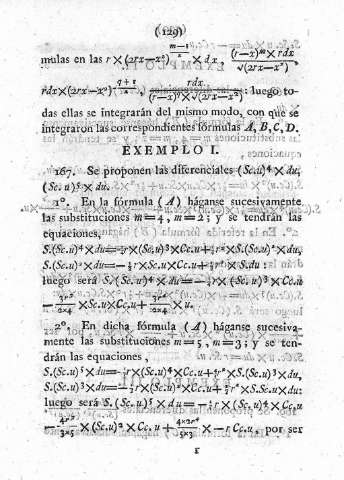 (129)
mulas en las r×(2rx−x²)^{(m−1)/2}×dx, (r−x)^m×rdx/√(2rx−x²),
rdx×(2rx−x²), rdx/(r−x)×√(2rx−x²): luego to-
das ellas se integrarán del mismo modo, con que se
integraron las correspondientes fórmulas A, B, C, D.
EXEMPLO I.
167. Se proponen las diferenciales (Sc.u)⁴×du,
(Sc.u)⁵×du.
1º. En la fórmula (A) háganse sucesivamente
las substituciones m=4, m=2; y se tendrán las
equaciones,
S.(Sc.u)⁴×du=−¼r×(Sc.u)³×Cc.u+¾r²×S.(Sc.u)²×du,
S.(Sc.u)²×du=−½r×Sc.u×Cc.u+½r²×S.du:
luego será S.(Sc.u)⁴×du=−¼r×(Sc.u)³×Cc.u
−3r³/2×4×Sc.u×Cc.u+3r⁴/2×4×u.
2º. En dicha fórmula (A) háganse sucesiva-
mente las substituciones m=5, m=3; y se ten-
drán las equaciones,
S.(Sc.u)⁵×du=−⅕r×(Sc.u)⁴×Cc.u+⅘r²×S.(Sc.u)³×du,
S.(Sc.u)³×du=−⅓r×(Sc.u)²×Cc.u+⅔r²×S.Sc.u×du:
luego será S.(Sc.u)⁵×du=−⅕r×(Sc.u)⁴×Cc.u
−4r³/3×5×(Sc.u)²×Cc.u+4×2r⁴/5×3×−rCc.u, por ser
r